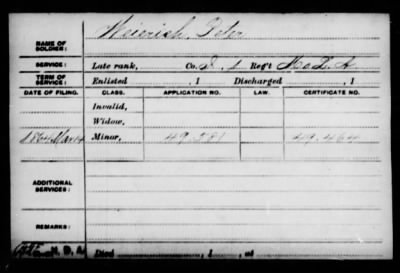 NAME OF SOLDIER: Heinrich, Peter
SERVICE: Late rank, Co. I, 1 Reg't Mo L A
TERM OF SERVICE: Enlisted , 1 Discharged , 1
DATE OF FILING. CLASS. APPLICATION NO. LAW. CERTIFICATE NO.
Invalid,
Widow,
1864 Mar 14 Minor, 49.581 49.464
ADDITIONAL SERVICES:
REMARKS:
Died , 1 , at